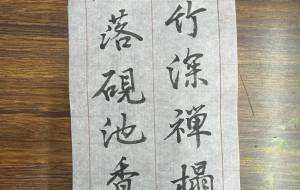 竹深禅榻
落砚池香